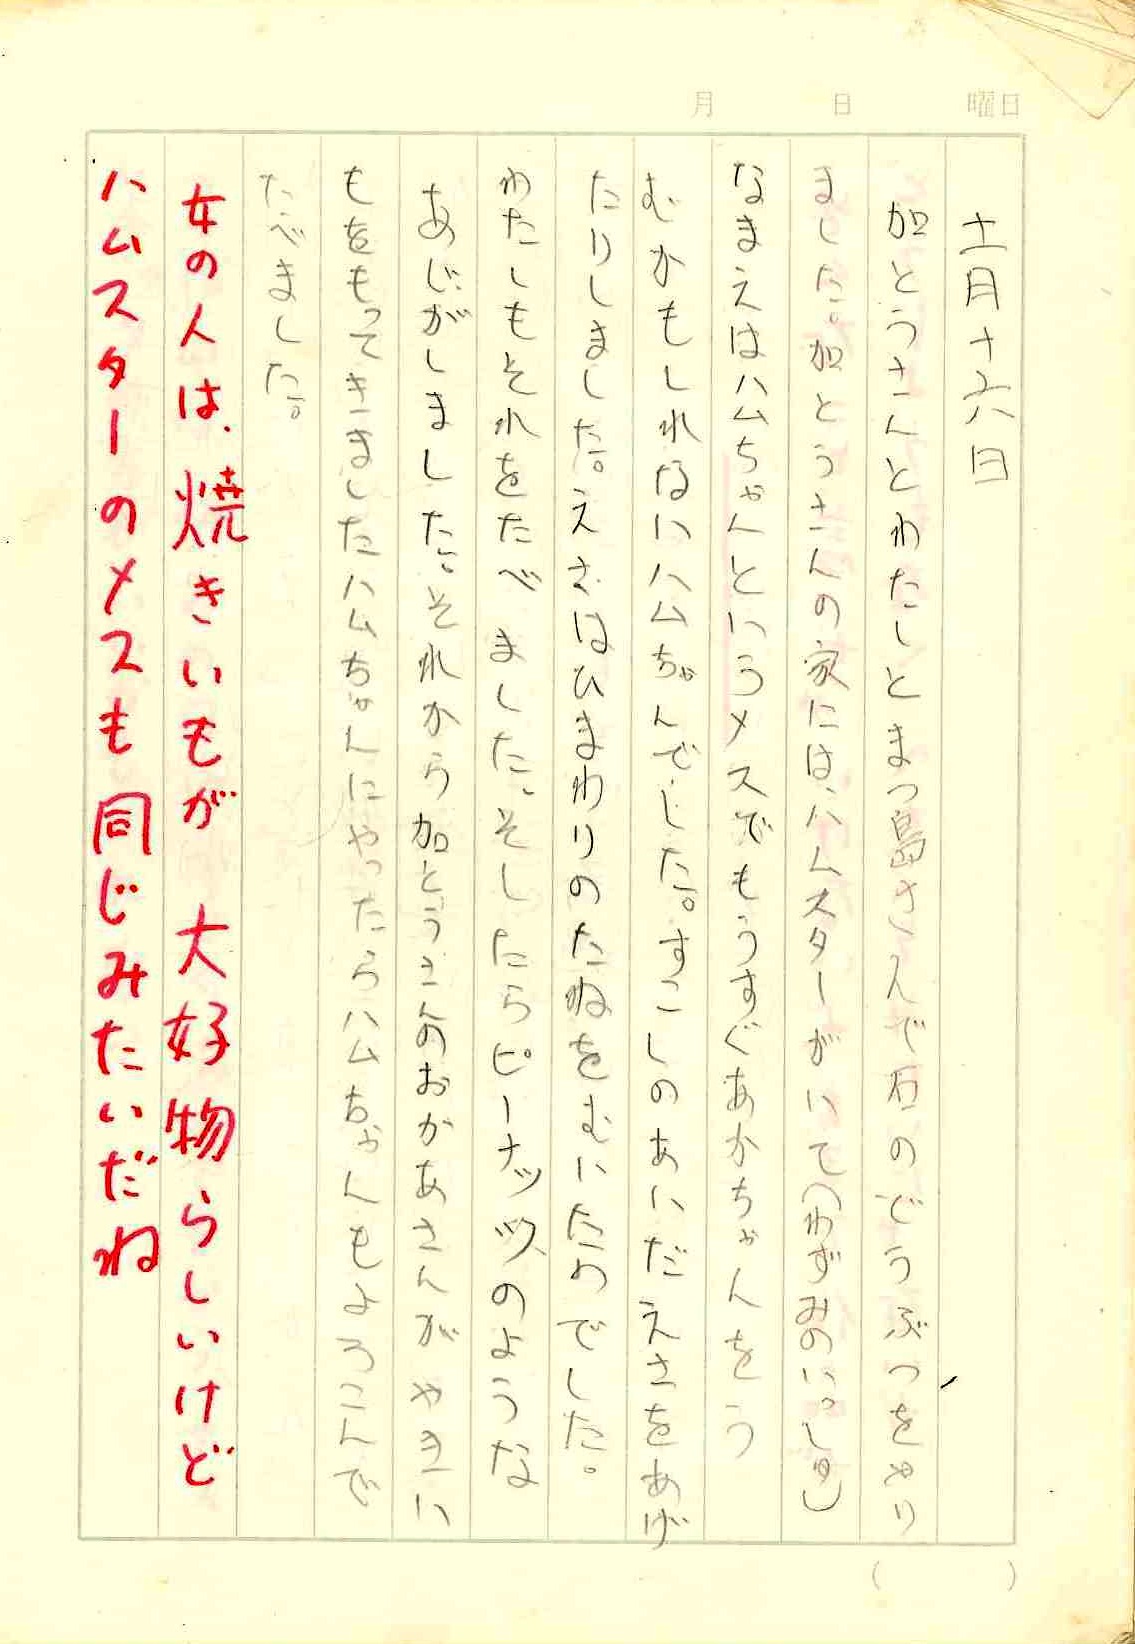 月 日 曜日
十一月十六日
加とうさんとわたしとまつ島さんで石のどうぶつをやり
ました。加とうさんの家には、ハムスターがいて(ねずみのい。しゅ)
なまえはハムちゃんというメスでもうすぐあかちゃんをう
むかもしれないハムちゃんでした。すこしのあいだえさをあげ
たりしました。えさはひまわりのたねをむいたのでした。
わたしもそれをたべました、そしたらピーナッツのような
あじがしました。それから加とうさんのおかあさんがやきい
もをもってきましたハムちゃんにやったらハムちゃんもよろこんで
たべました。
女の人は、焼きいもが 大好物らしいけど
ハムスターのメスも同じみたいだね
( )